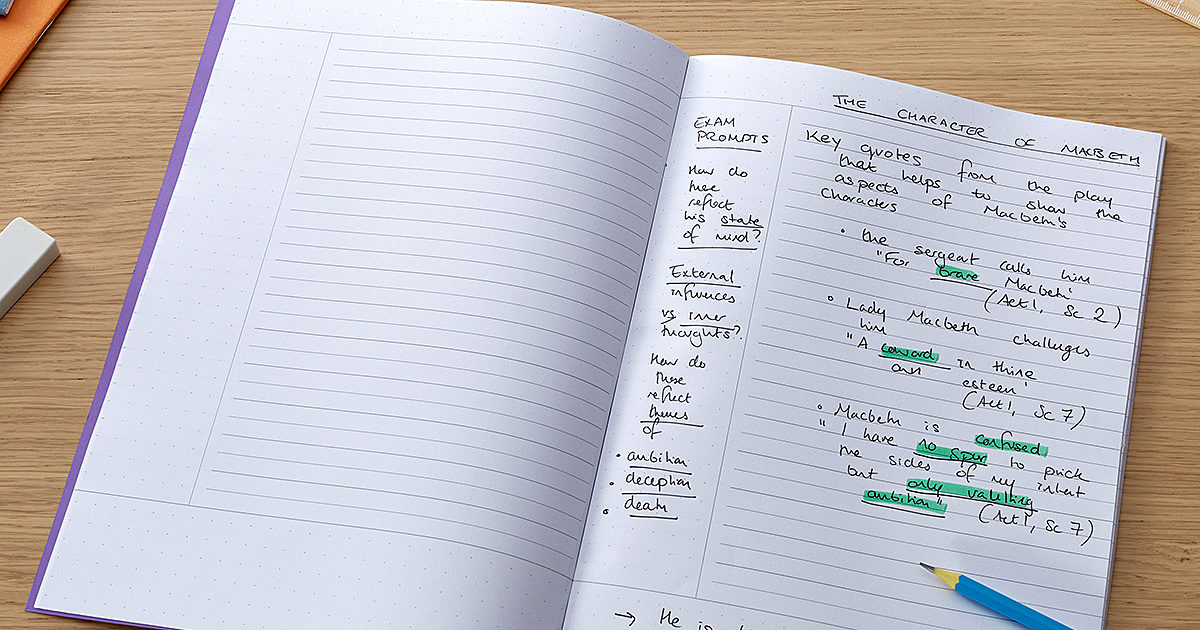 EXAM
PROMPTS
How do
these
reflect
his state
of mind?
External
influences
vs inner
thoughts?
How do
these
reflect
themes
of
• ambition
• deception
• death
•
THE CHARACTER OF MACBETH
Key quotes from the play
that helps to show the
aspects of Macbeth's
Characters
• the sergeat calls him
"For brave Macbeth"
(Act 1, Sc 2)
• Lady Macbeth challenges
him
"A coward in thine
own esteem"
(Act 1, Sc 7)
• Macbeth is confused
"I have no spur to prick
the sides of my intent
but only vaulting
ambition" (Act 1, Sc 7)
→ He is